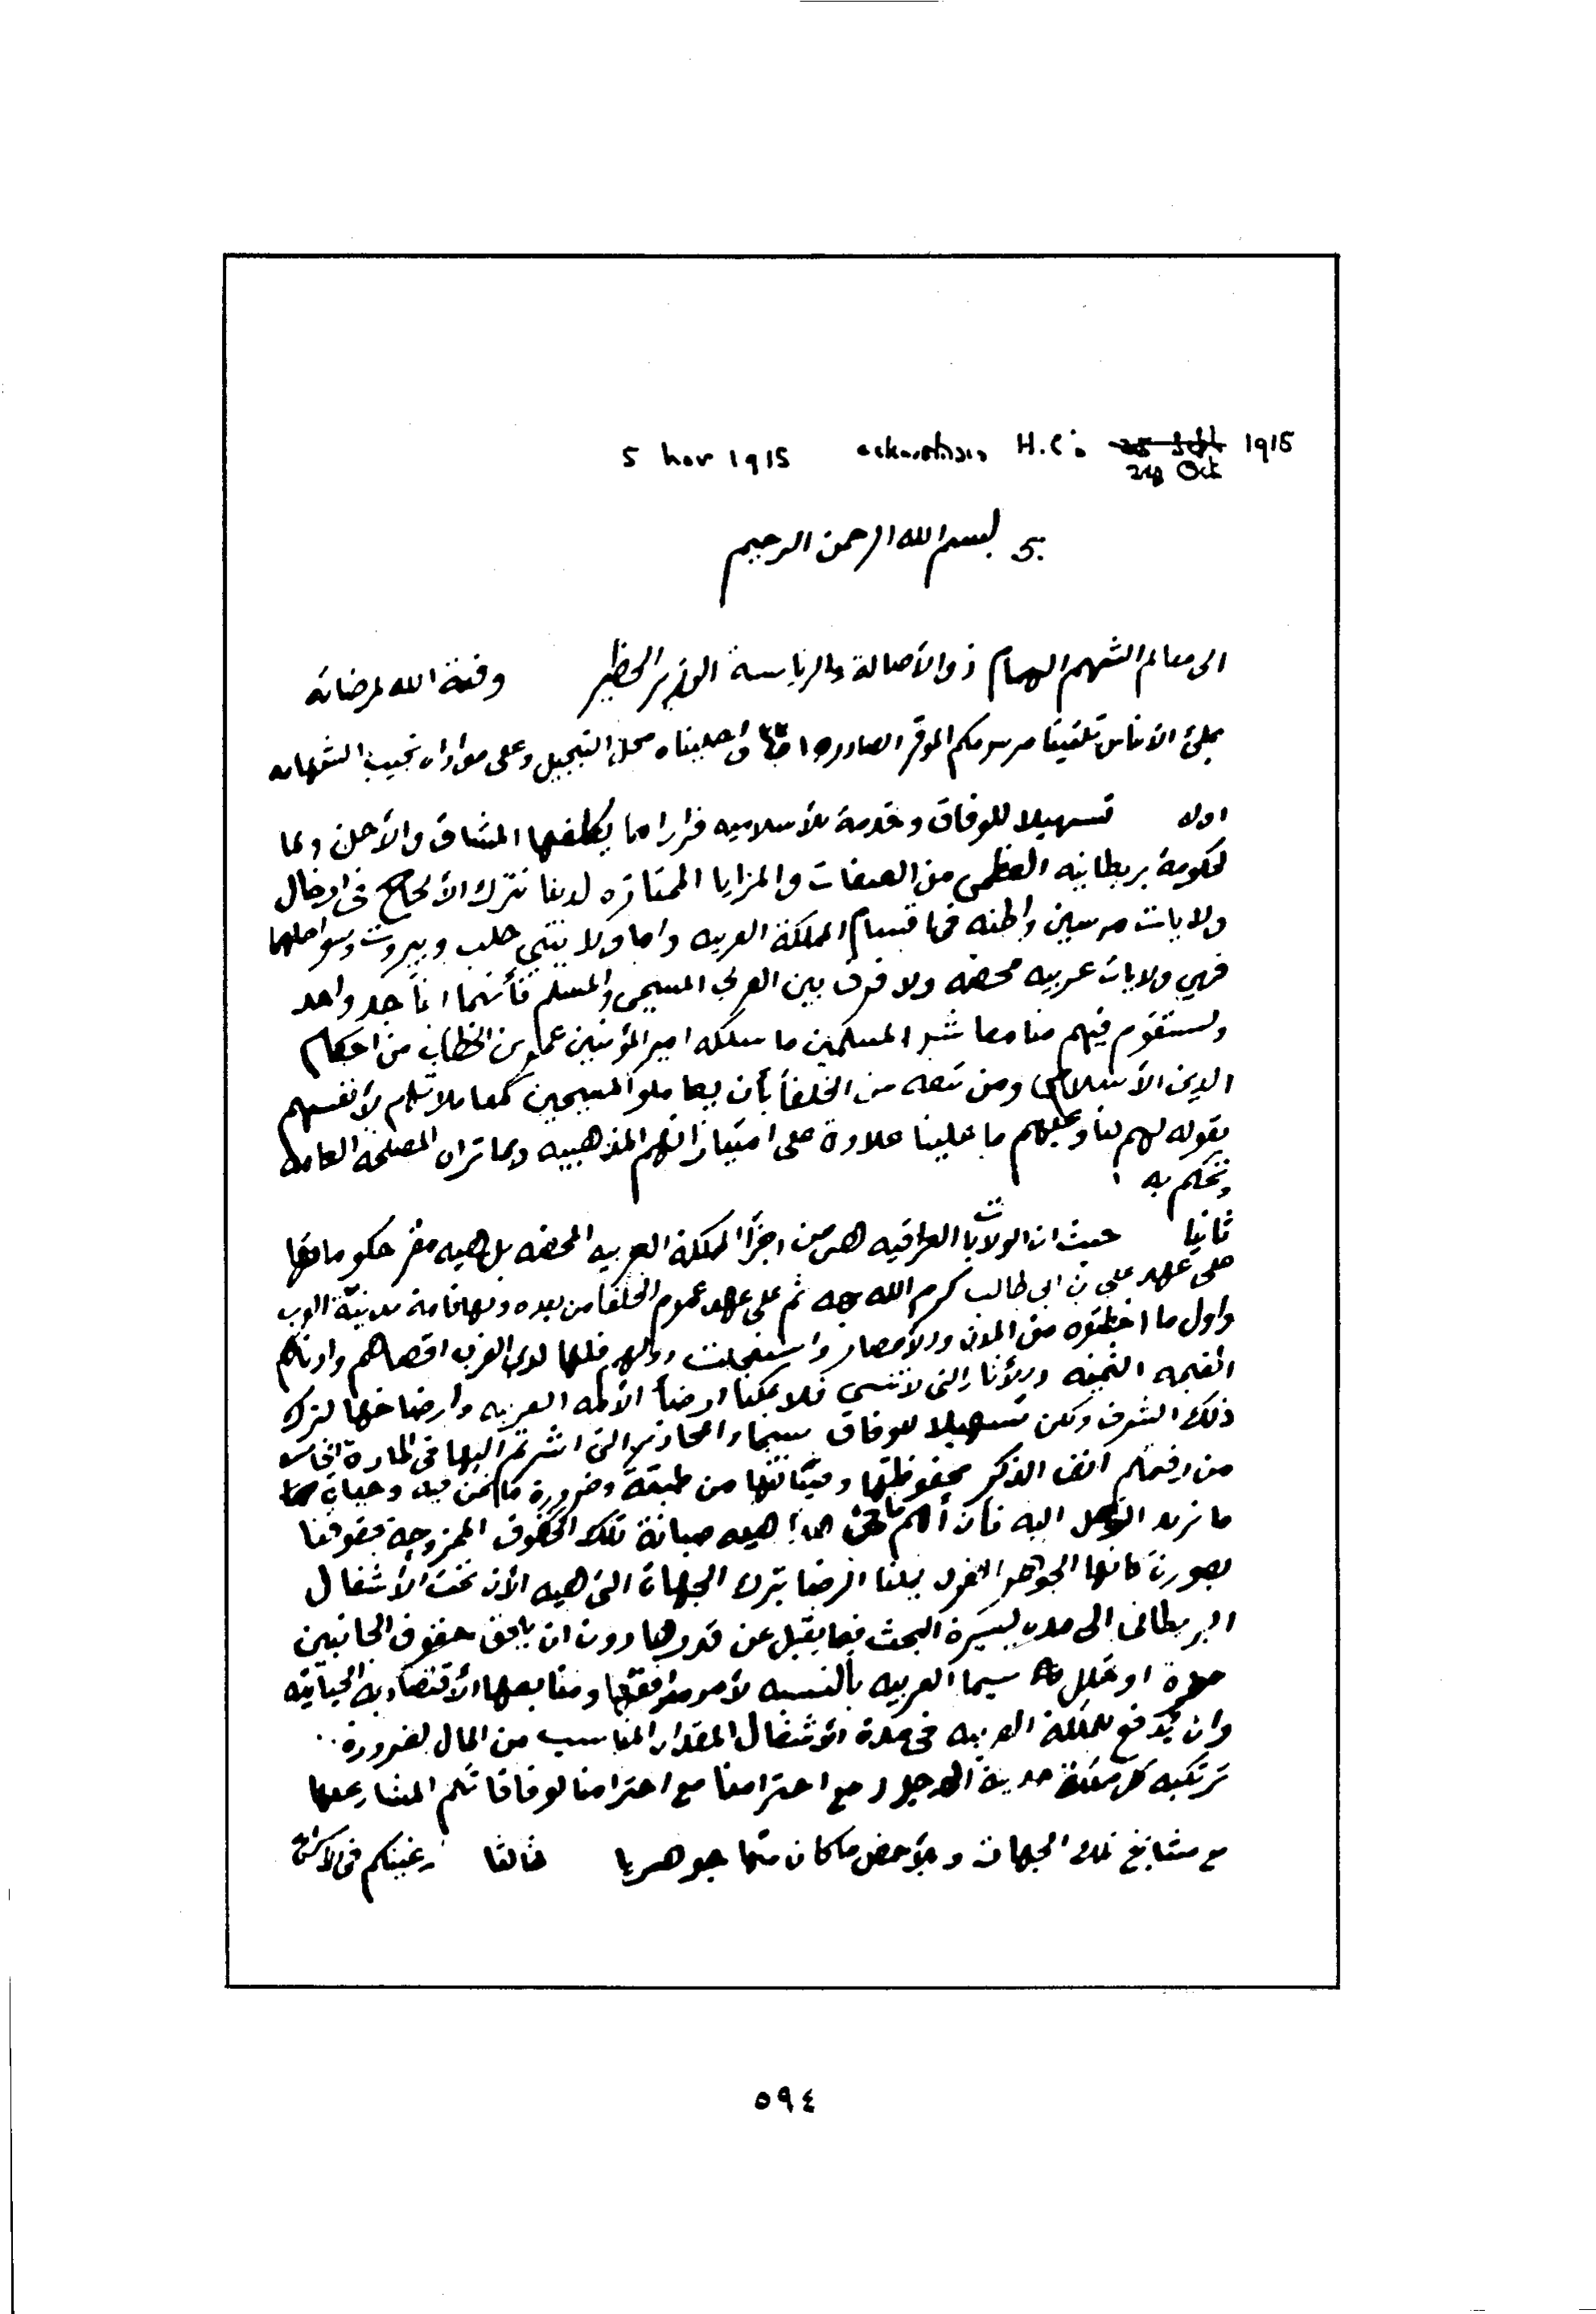 5 nov 1915 H.C's 25 Sept 1915
24 Oct
5. بسم الله الرحمن الرحيم
الى معالم الشهم الهمام ذو الأصالة والرياسة الوزير الخطير وفقه الله لمرضاته
بملئ الأيناس تلقينا مرسومكم الموقر الصادر واحليناه محل التبجيل وعلى مؤداه نجيب الشهامه
اولا تسهيلا للوفاق وخدمة للأسلاميه فرارا مما يكلفها المشاق والأحن ولما
لحكومة بريطانيه العظمى من الصفات والمزايا الممتازه لدينا نترك الألحاح فى ادخال
ولايات مرسين واطنه فى اقسام المملكة العربيه واما ولايتي حلب وبيروت وسواحلهما
فهي ولايات عربيه محضه ولا فرق بين العربي المسيحى والمسلم فأنهما ابنا جد واحد
ولستقوم فيهم منا معاشر المسلمين ما سلكه امير المؤمنين عمر بن الخطاب من احكام
الدين الأسلامى ومن تبعه من الخلفا بأن يعاملوا المسيحين كمعاملاتهم لأنفسهم
بقوله لهم لنا وعليهم ما علينا علاوة على امتيازاتهم المذهبيه وبما تراه المصلحه العامه
وتحكم به
ثانيا حيث ان الولايات العراقيه هى من اجزآ المملكة العربيه المحضه بل هيه مقر حكوماتها
على عهد علي بن ابى طالب كرم الله وجهه ثم على عهد عموم الخلفا من بعده وبها قامة مدنيّة العرب
واول ما اختطوه من المدن والأمصار واستفحلت دولهم فلها لدى العرب اقصاهم وادناهم
القيمه الثمينه والأثار التى لا تنسي فلا يمكنا ارضأ الأمه العربيه وارضاخها لترك
ذلك الشرف ولكن تسهيلا للوفاق سيما والمحاذير التى اشرتم اليها فى المادة الخامسه
من رقيمكم انف الذكر محفوظيتها وصيانتها من طبيعة وضرورة ما نحن فيه وحيات
ما نريد التوصل اليه فأن أهم ما فى هذا هيه صيانة تلك الحقوق الممزوجة بحقوقنا
بصورة كانها الجوهر الفرد يمكنا الرضا بترك الجهات التى هيه الأن تحت الأشغال
البريطانى الى مدة يسيرة البحث فيما يقبل عن قدرها دون ان يلحق حقوق الجانبين
مضرة او خلل سيما العربيه بالنسبه لأمر مرافقها ومنابعها الأقتصاديه الحياتيه
وان يُدفع للمملكة العربيه فى مدة الأشغال المقدار المناسب من المال لضرورة
ترتكبه كل مملكة حديثة الوجود مع احترامنا مع احترامنا لوفاقاتكم المشار عنها
مع مشايخ تلك الجهات وبالأخص ما كان منها جوهريا ثالثا رغبتكم فى الأسراع
٥٩٤